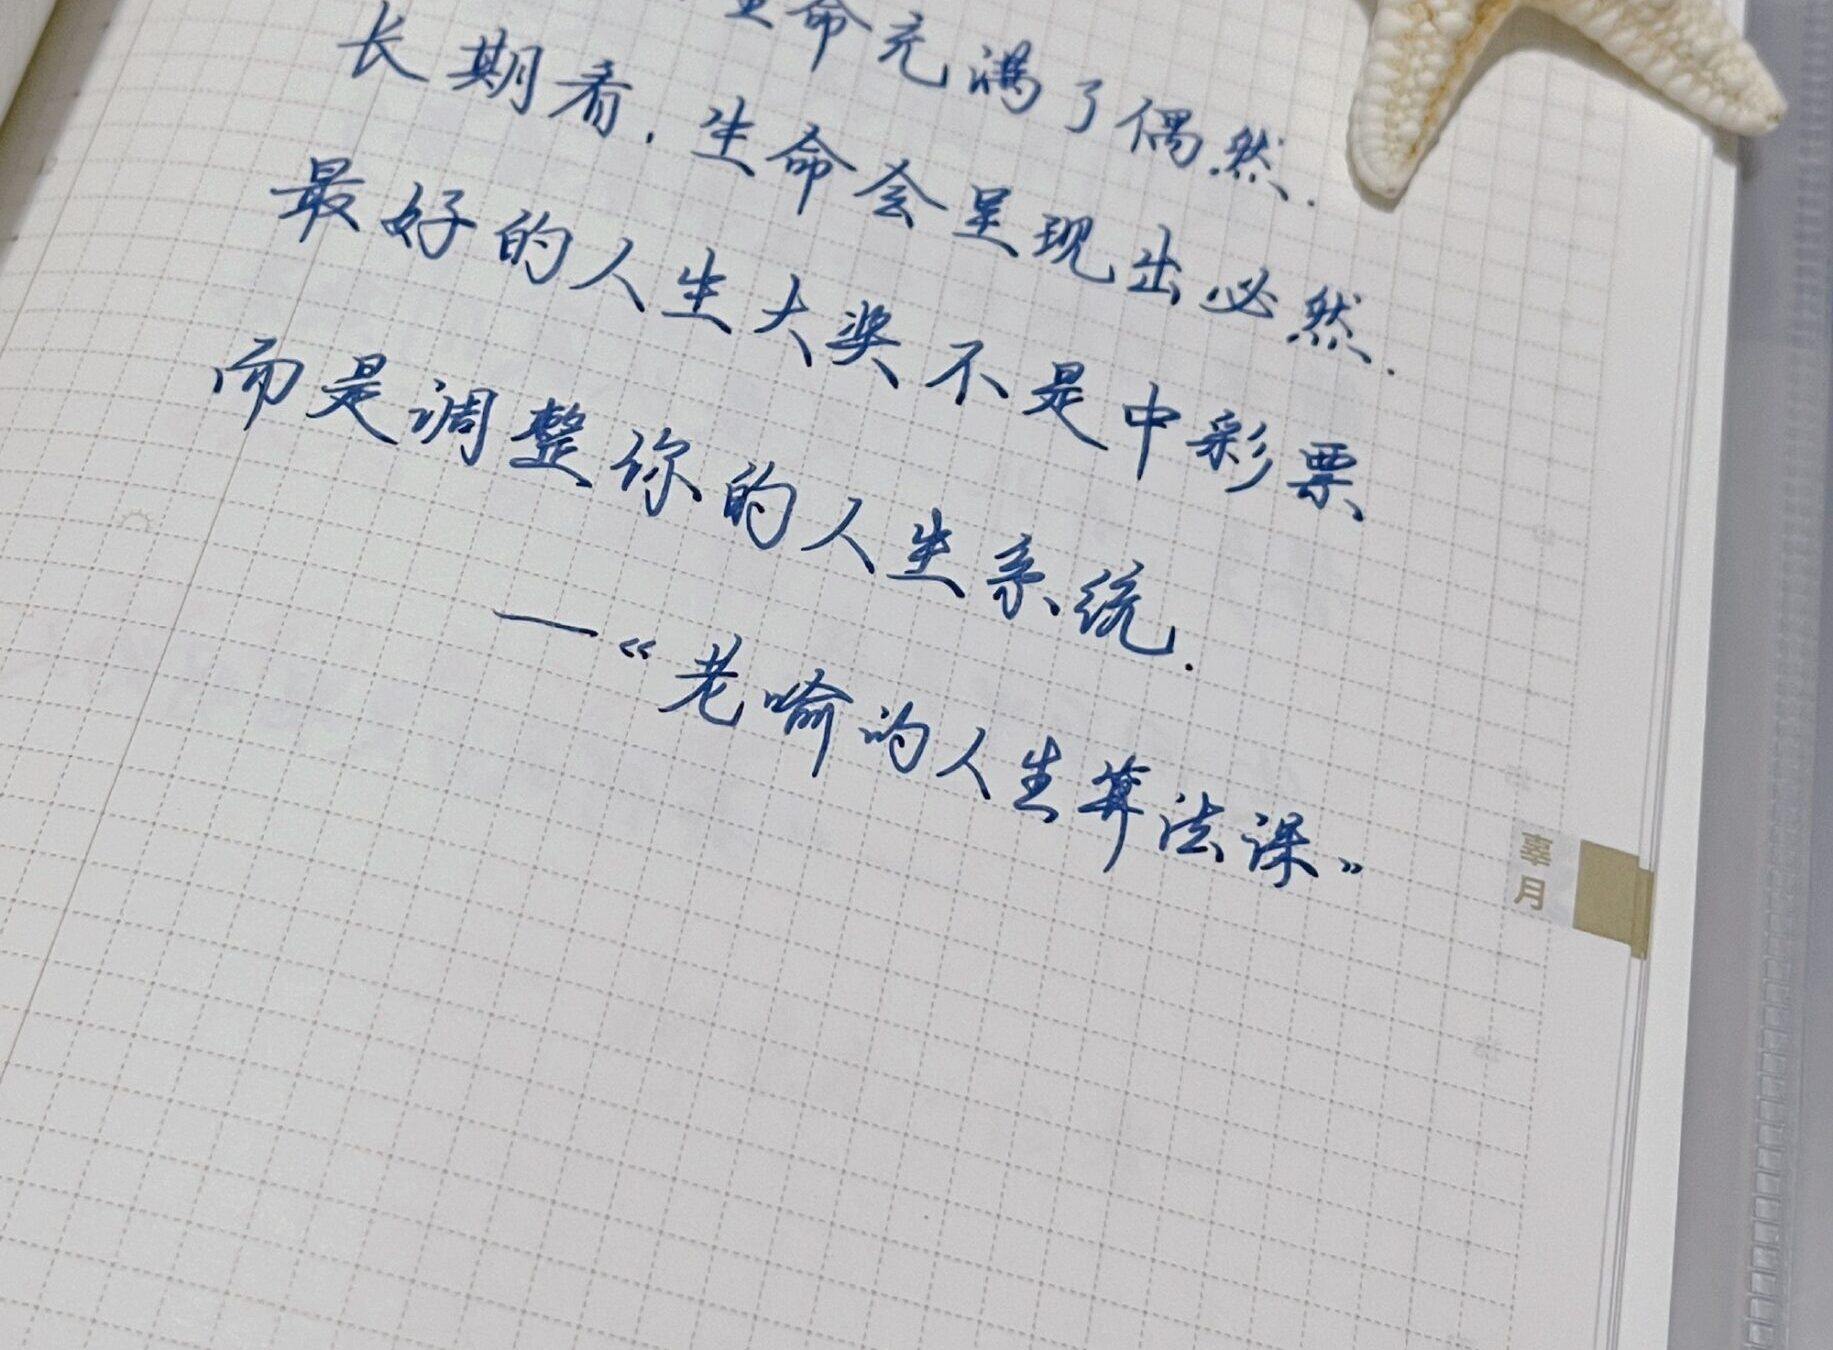 生命充满了偶然.
长期看.生命会呈现出必然.
最好的人生大奖不是中彩票
而是调整你的人生系统.
—《老喻的人生算法课》
辜月